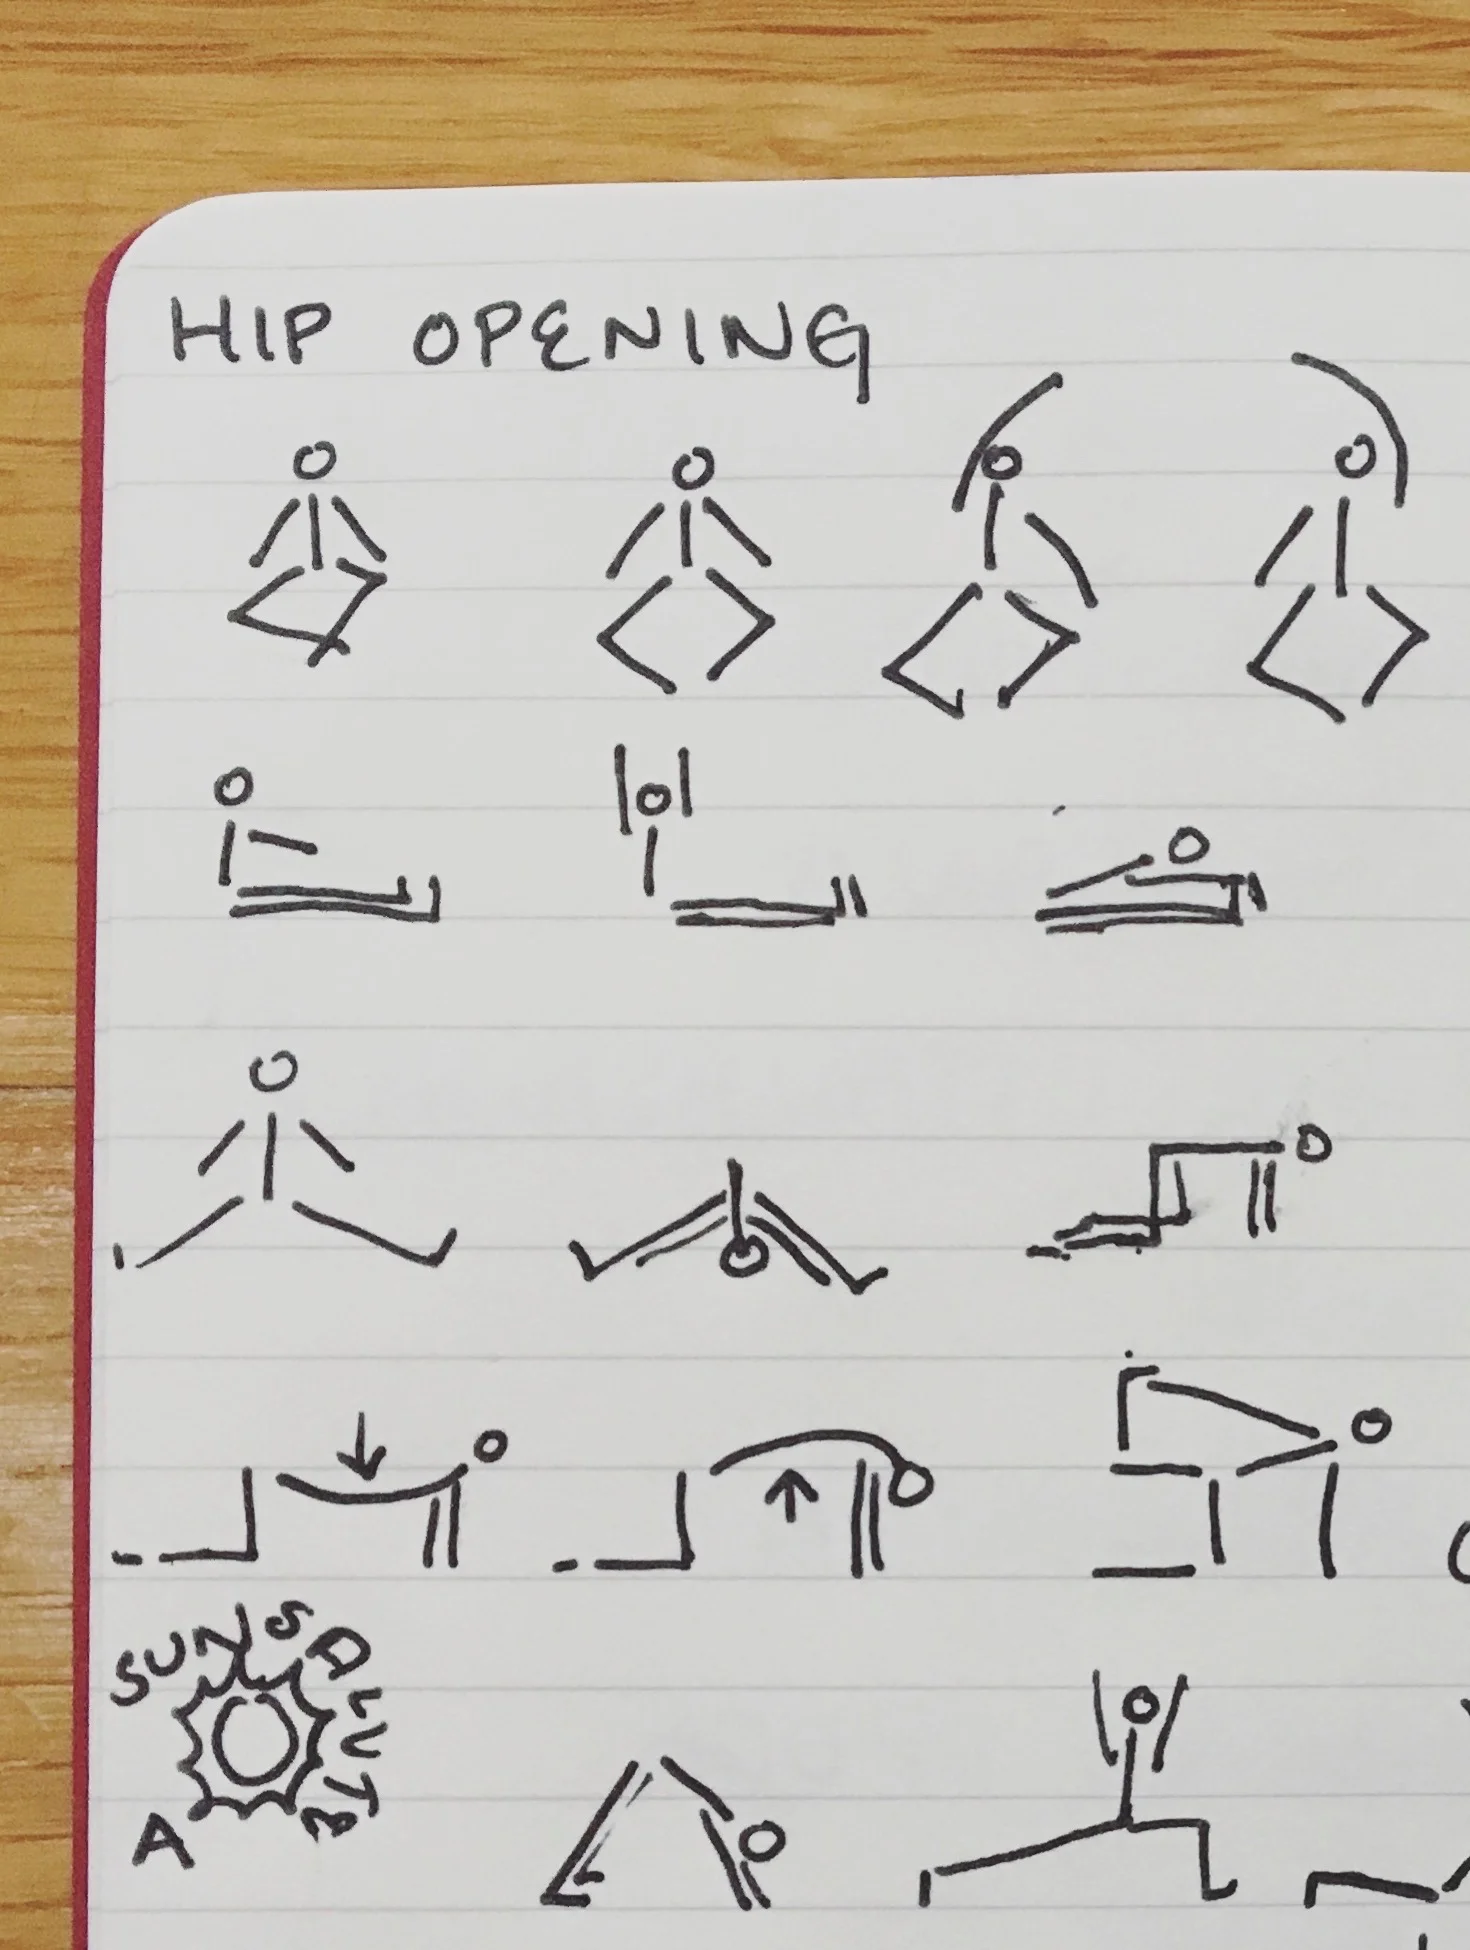 HIP OPENING
SUN SALUTE
A